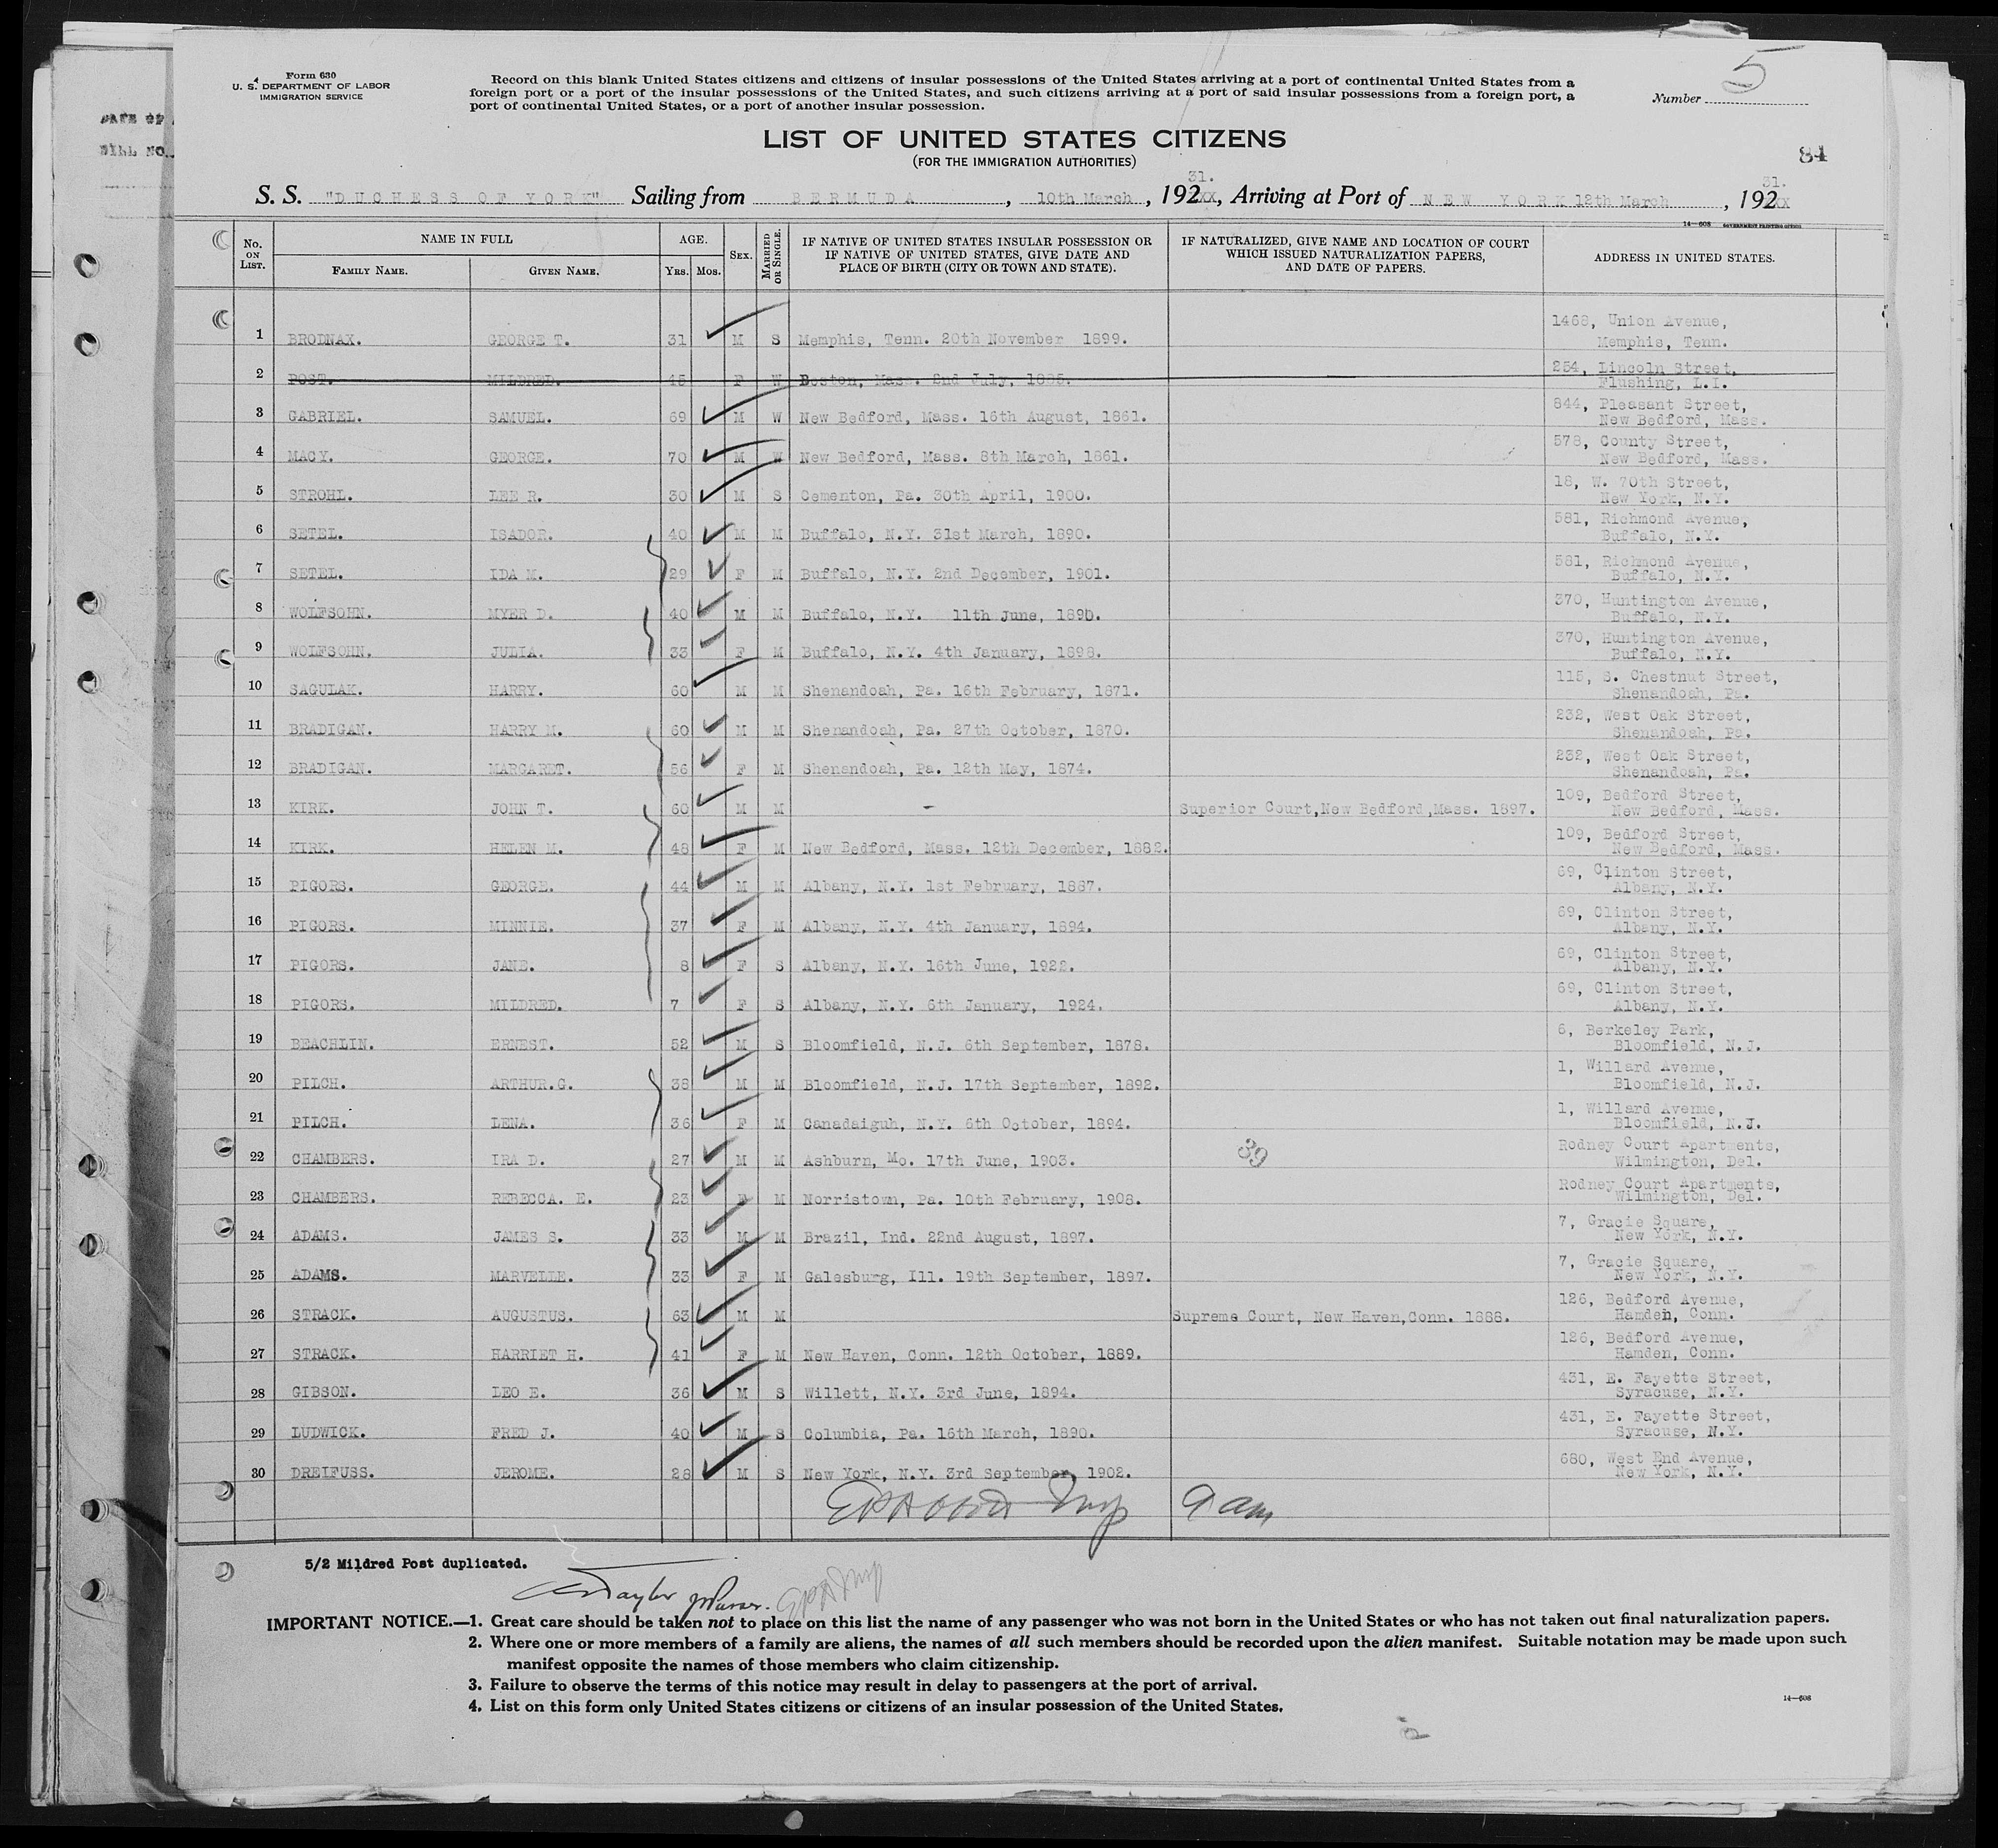 DATE OF
BILL NO.
Form 630
U. S. DEPARTMENT OF LABOR
IMMIGRATION SERVICE
Record on this blank United States citizens and citizens of insular possessions of the United States arriving at a port of continental United States from a
foreign port or a port of the insular possessions of the United States, and such citizens arriving at a port of said insular possessions from a foreign port, a
port of continental United States, or a port of another insular possession.
Number 5
LIST OF UNITED STATES CITIZENS
(FOR THE IMMIGRATION AUTHORITIES)
84
S. S. "DUCHESS OF YORK" Sailing from BERMUDA, 10th March, 192xx 31., Arriving at Port of NEW YORK 12th March, 192xx 31.
14—608 GOVERNMENT PRINTING OFFICE
No. ON LIST. NAME IN FULL FAMILY NAME. GIVEN NAME. AGE. YRS. MOS. SEX. MARRIED OR SINGLE. IF NATIVE OF UNITED STATES INSULAR POSSESSION OR IF NATIVE OF UNITED STATES, GIVE DATE AND PLACE OF BIRTH (CITY OR TOWN AND STATE). IF NATURALIZED, GIVE NAME AND LOCATION OF COURT WHICH ISSUED NATURALIZATION PAPERS, AND DATE OF PAPERS. ADDRESS IN UNITED STATES.
1 BRODNAX. GEORGE T. 31 M S Memphis, Tenn. 20th November 1899. 1468, Union Avenue, Memphis, Tenn.
2 POST. MILDRED. 45 F W Boston, Mass. 2nd July, 1885. 254, Lincoln Street, Flushing, L.I.
3 GABRIEL. SAMUEL. 69 M W New Bedford, Mass. 16th August, 1861. 844, Pleasant Street, New Bedford, Mass.
4 MACY. GEORGE. 70 M W New Bedford, Mass. 8th March, 1861. 578, County Street, New Bedford, Mass.
5 STROHL. LEE R. 30 M S Cementon, Pa. 30th April, 1900. 18, W. 70th Street, New York, N.Y.
6 SETEL. ISADOR. 40 M M Buffalo, N.Y. 31st March, 1890. 581, Richmond Avenue, Buffalo, N.Y.
7 SETEL. IDA M. 29 F M Buffalo, N.Y. 2nd December, 1901. 581, Richmond Avenue, Buffalo, N.Y.
8 WOLFSOHN. MYER D. 40 M M Buffalo, N.Y. 11th June, 1890. 370, Huntington Avenue, Buffalo, N.Y.
9 WOLFSOHN. JULIA. 33 F M Buffalo, N.Y. 4th January, 1898. 370, Huntington Avenue, Buffalo, N.Y.
10 SAGULAK. HARRY. 60 M M Shenandoah, Pa. 16th February, 1871. 115, S. Chestnut Street, Shenandoah, Pa.
11 BRADIGAN. HARRY M. 60 M M Shenandoah, Pa. 27th October, 1870. 232, West Oak Street, Shenandoah, Pa.
12 BRADIGAN. MARGARET. 56 F M Shenandoah, Pa. 12th May, 1874. 232, West Oak Street, Shenandoah, Pa.
13 KIRK. JOHN T. 60 M M - Superior Court,New Bedford,Mass. 1897. 109, Bedford Street, New Bedford, Mass.
14 KIRK. HELEN M. 48 F M New Bedford, Mass. 12th December, 1882. 109, Bedford Street, New Bedford, Mass.
15 PIGORS. GEORGE. 44 M M Albany, N.Y. 1st February, 1887. 69, Clinton Street, Albany, N.Y.
16 PIGORS. MINNIE. 37 F M Albany, N.Y. 4th January, 1894. 69, Clinton Street, Albany, N.Y.
17 PIGORS. JANE. 8 F S Albany, N.Y. 16th June, 1922. 69, Clinton Street, Albany, N.Y.
18 PIGORS. MILDRED. 7 F S Albany, N.Y. 6th January, 1924. 69, Clinton Street, Albany, N.Y.
19 BEACHLIN. ERNEST. 52 M S Bloomfield, N.J. 6th September, 1878. 6, Berkeley Park, Bloomfield, N.J.
20 PILCH. ARTHUR.G. 38 M M Bloomfield, N.J. 17th September, 1892. 1, Willard Avenue, Bloomfield, N.J.
21 PILCH. LENA. 36 F M Canadaiguh, N.Y. 6th October, 1894. 1, Willard Avenue, Bloomfield, N.J.
22 CHAMBERS. IRA D. 27 M M Ashburn, Mo. 17th June, 1903. 39 Rodney Court Apartments, Wilmington, Del.
23 CHAMBERS. REBECCA. E. 23 F M Norristown, Pa. 10th February, 1908. Rodney Court Apartments, Wilmington, Del.
24 ADAMS. JAMES S. 33 M M Brazil, Ind. 22nd August, 1897. 7, Gracie Square, New York, N.Y.
25 ADAMS. MARVELLE. 33 F M Galesburg, Ill. 19th September, 1897. 7, Gracie Square, New York, N.Y.
26 STRACK. AUGUSTUS. 63 M M Supreme Court, New Haven,Conn. 1888. 126, Bedford Avenue, Hamden, Conn.
27 STRACK. HARRIET H. 41 F M New Haven, Conn. 12th October, 1889. 126, Bedford Avenue, Hamden, Conn.
28 GIBSON. LEO E. 36 M S Willett, N.Y. 3rd June, 1894. 431, E. Fayette Street, Syracuse, N.Y.
29 LUDWICK. FRED J. 40 M S Columbia, Pa. 16th March, 1890. 431, E. Fayette Street, Syracuse, N.Y.
30 DREIFUSS. JEROME. 28 M S New York, N.Y. 3rd September, 1902. 680, West End Avenue, New York, N.Y.
9 am
5/2 Mildred Post duplicated.
Taylor
IMPORTANT NOTICE.—1. Great care should be taken not to place on this list the name of any passenger who was not born in the United States or who has not taken out final naturalization papers.
2. Where one or more members of a family are aliens, the names of all such members should be recorded upon the alien manifest. Suitable notation may be made upon such
manifest opposite the names of those members who claim citizenship.
3. Failure to observe the terms of this notice may result in delay to passengers at the port of arrival.
4. List on this form only United States citizens or citizens of an insular possession of the United States.
14—608